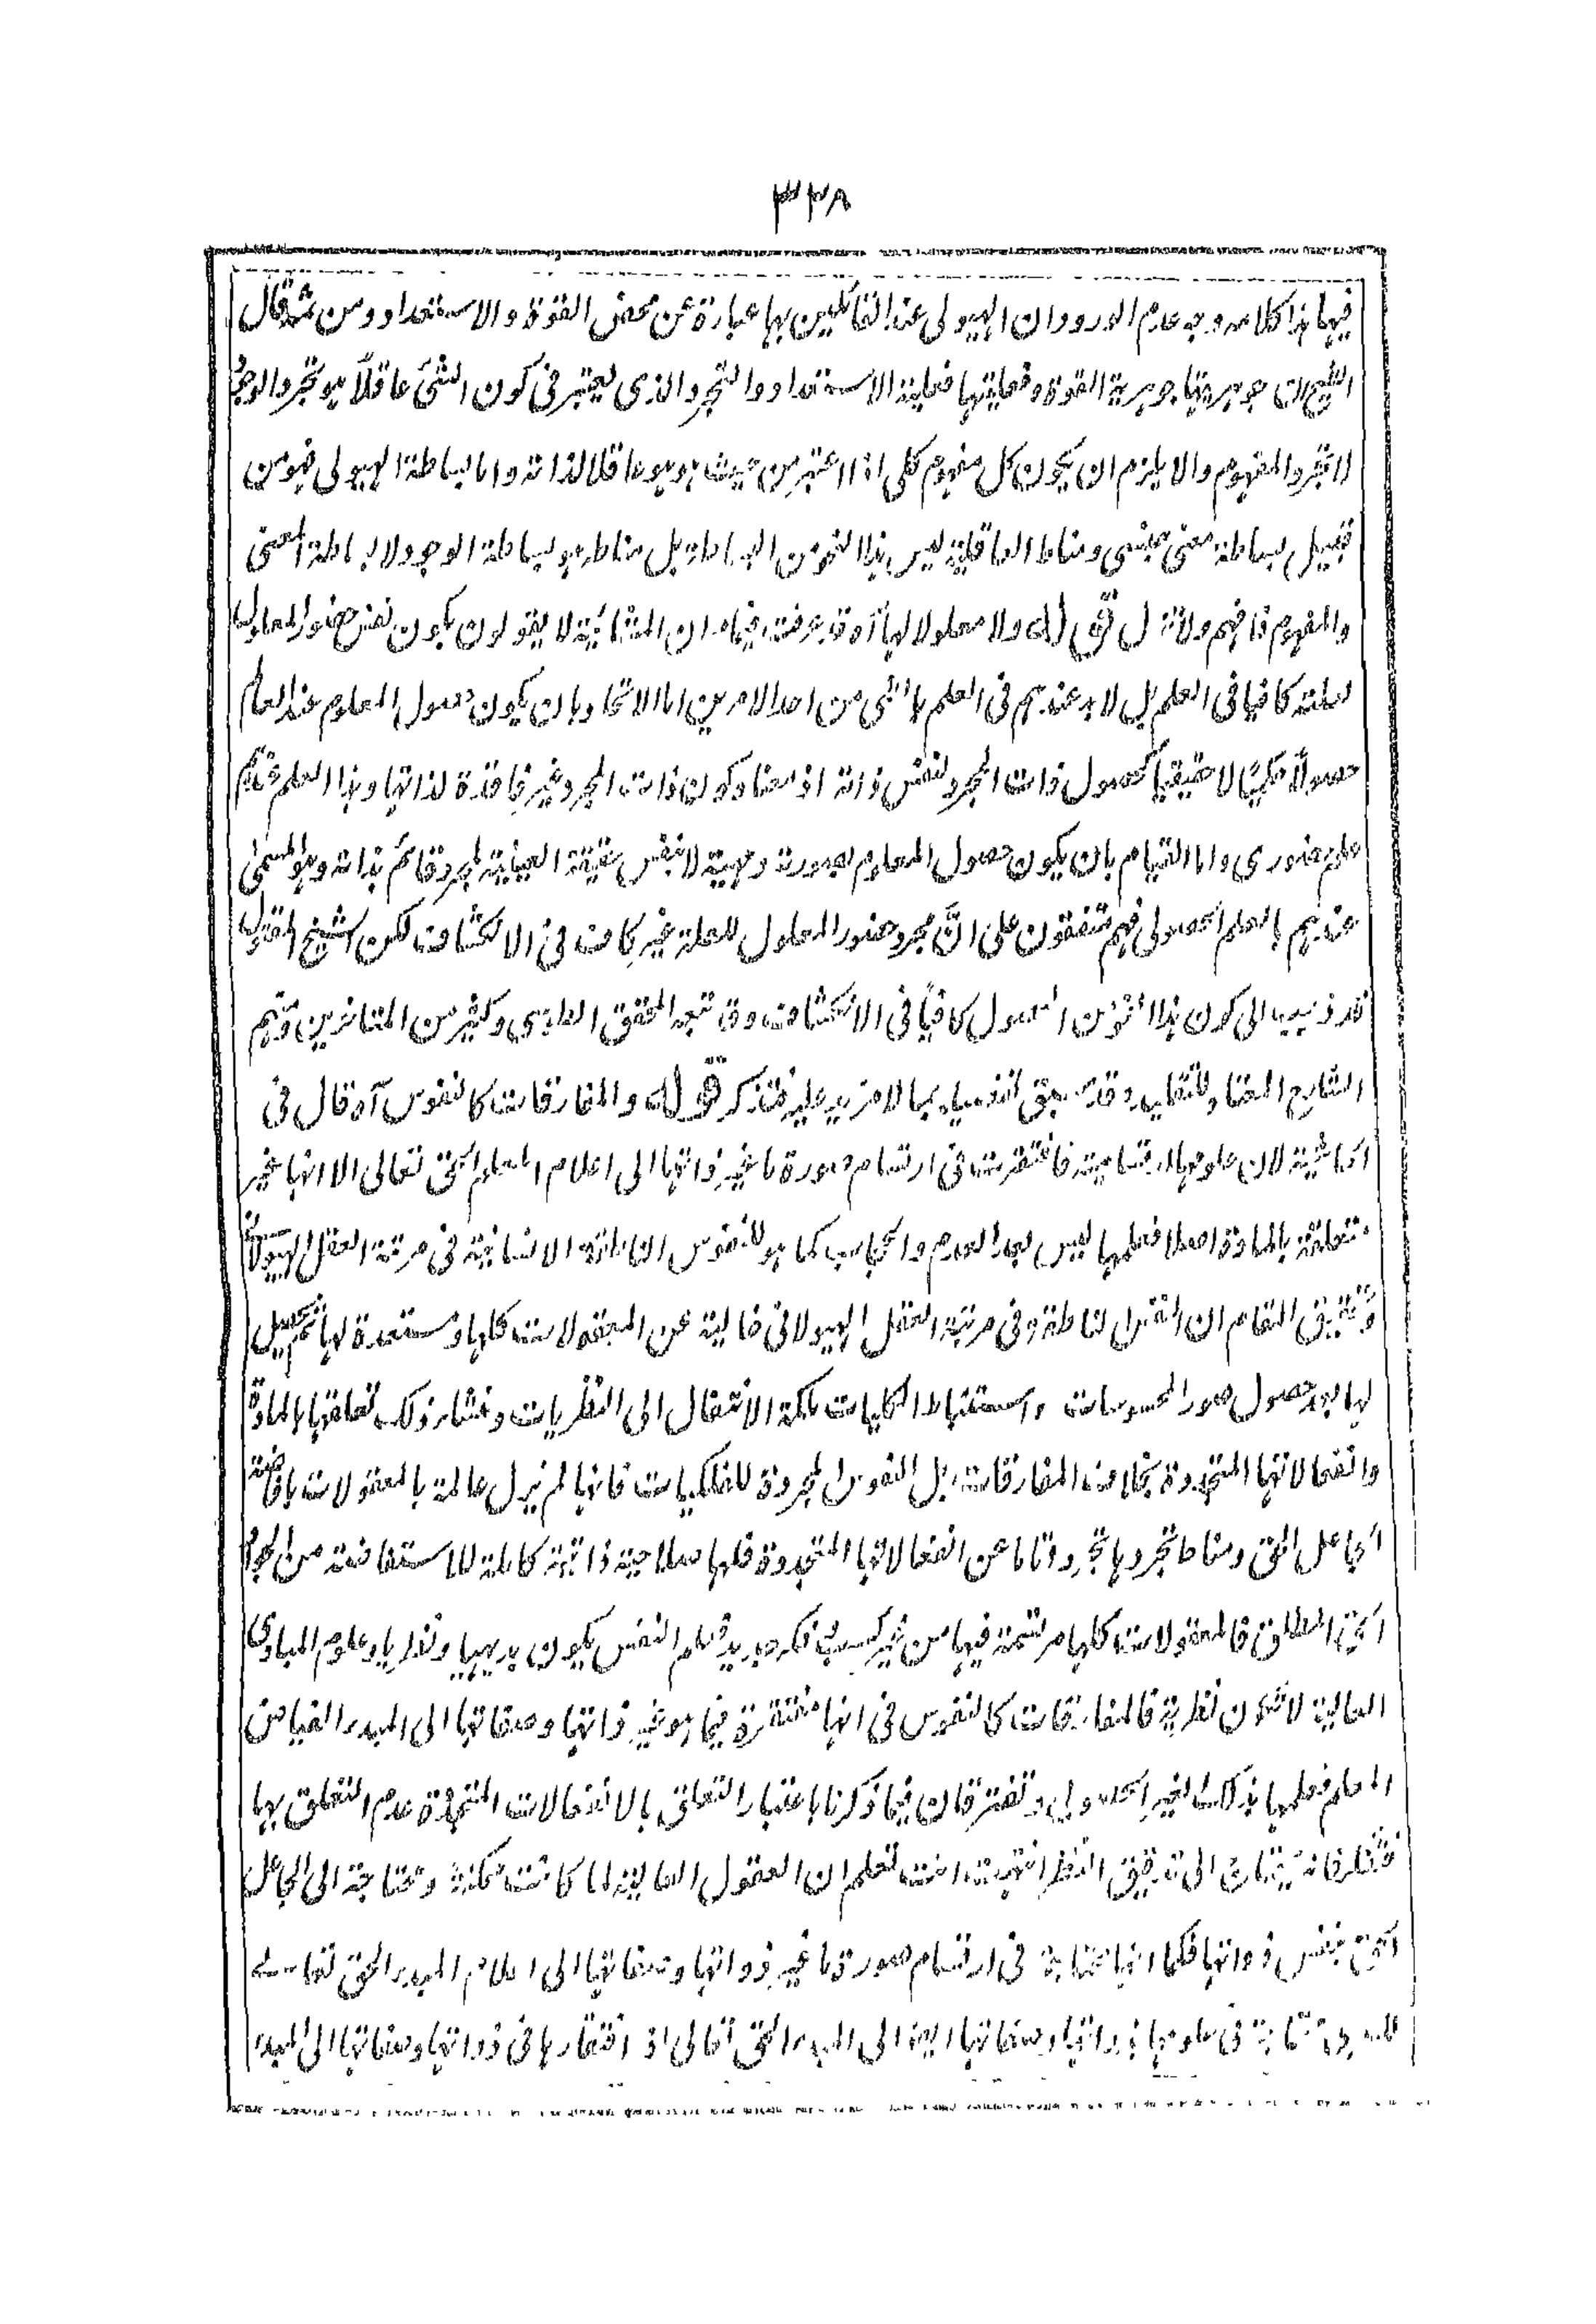 ٣٣٨
فيها هذا كلامه وجه عدم الورود ان الهيولى عند القائلين بها عبارة عن محض القوة والاستعداد ومن ثم قال
الشيخ ان جوهريتها جوهرية القوة وفعليتها فعلية الاستعداد والتجرد الذى يعتبر فى كون الشئ عاقلاً هو تجرد الوجود
لا تجرد المفهوم والا يلزم ان يكون كل مفهوم كلى اذا اعتبر من حيث هو هو عاقلا لذاته واما بساطة الهيولى فهو من
قبيل بساطة معنى جنسى ومناط العاقلية ليس هذا النحو من البساطة بل مناطه هو بساطة الوجود لا بساطة المعنى
والمفهوم فافهم ولا تزل قوله ولا معلولا لها آه قد عرفت فيما مر ان المشائية لا يقولون بكون نفس حضور المعلول
لعلته كافيا فى العلم بل لا بد عندهم فى العلم بالشئ من احد الامرين اما الاتحاد بان يكون حصول المعلوم عند العالم
حصولاً حكميًا لا حقيقيا كحصول ذات المجرد لنفس ذاته اذ معناه كون ذات المجرد غير فاقدة لذاتها وهذا العلم عندهم
علم حضورى واما القيام بان يكون حصول المعلوم بصورته ومهيته لا بنفس حقيقة العينية لمجرد قائم بذاته وهو المسمى
عندهم بالعلم الحصولى فهم متفقون على انَّ مجرد حضور المعلول للعلة غير كاف فى الانكشاف لكن الشيخ المقتول
قد ذهب الى كون هذا النحو من الحصول كافياً فى الانكشاف وقد تبعه المحقق الطوسى وكثير من المتاخرين ومنهم
الشارح المعتاد للتقليد وقد سبق تفصيله بما لا مزيد عليه فتذكر قوله والمفارقات كالنفوس آه قال فى
الحاشية لان علومها ارتسامية فافتقرت فى ارتسام صورة ما غير ذاتها الى اعلام المعلم الحق تعالى الا انها غير
متعلقة بالمادة اصلا فعلمها ليس بعد العدم والحجاب كما هو للنفوس الناطقة الانسانية فى مرتبة العقل الهيولانى
وتحقيق المقام ان النفس الناطقة فى مرتبة العقل الهيولانى خالية عن المعقولات كلها ومستعدة لها ثم يحصل
لها بعد حصول صور المحسوسات واستنباط الكليات ملكة الانتقال الى النظريات ومنشأ ذلك تعلقها بالمادة
وانفعالاتها المتجددة بخلاف المفارقات بل النفوس المجردة للفلكيات فانها لم تزل عالمة بالمعقولات بافاضة
الجاعل الحق ومناط تجردها تجردا تاما عن انفعالاتها المتجددة فلها صلاحية ذاتية كاملة للاستفاضة من الجواد
الحق المطلق فالمعقولات كلها مرتسمة فيها من غير كسب فكر جديد فعلم النفس يكون بديهيا ونظريا وعلوم المبادى
العالية لا تكون نظرية فالمفارقات كالنفوس فى انها مفتقرة فيما هو غير ذاتها وصفاتها الى المبدء الفياض
المعلم فعلمها بذلك الغير الحصولى وتفترقان فيما ذكرنا باعتبار التعلق بالانفعالات المتجددة وعدم التعلق بها
فانه يحتاج الى تدقيق النظر انتهت انت تعلم ان العقول العالية لما كانت ممكنة ومحتاجة الى الجاعل
الحق بنفس ذواتها فكما انها محتاجة فى ارتسام صورة ما غير ذواتها وصفاتها الى اعلام المبدء الحق تعالى
كذلك محتاجة فى علومها بذواتها وصفاتها ايضا الى المبدء الحق تعالى اذ افتقارها فى ذواتها وصفاتها الى المبدء